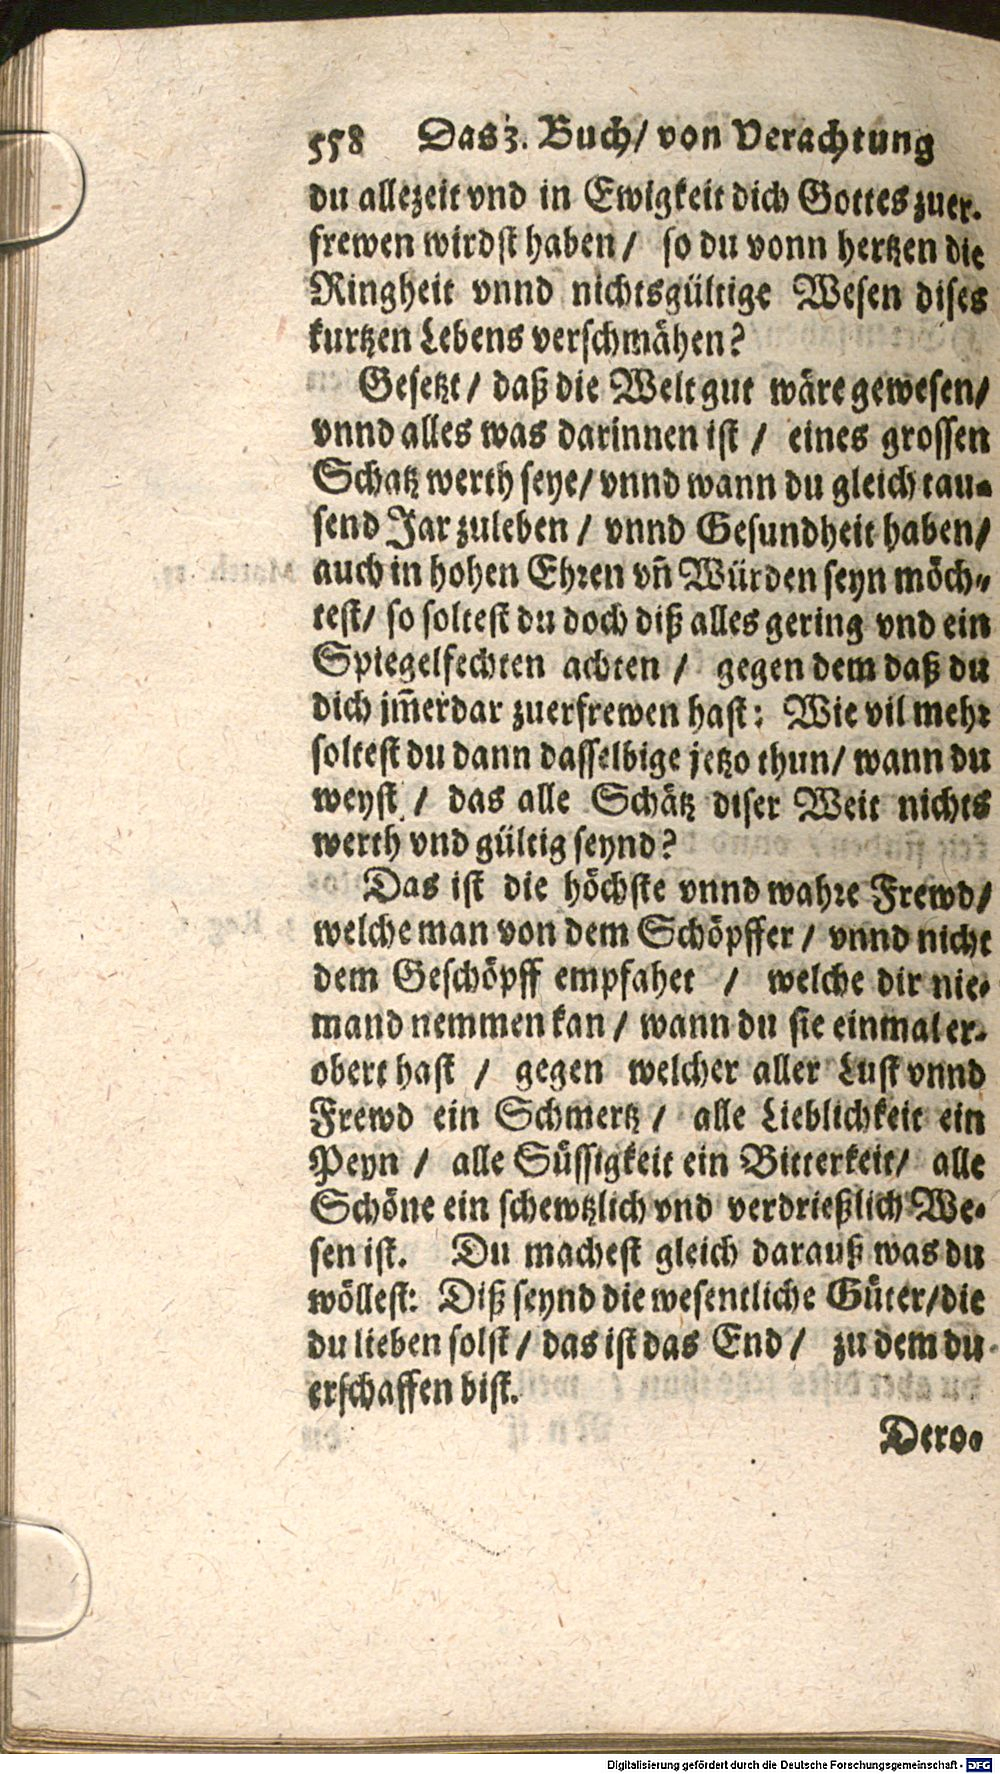 558 Das 3. Buch/ von Verachtung
du allezeit vnd in Ewigkeit dich Gottes zuer-
frewen wirdst haben/ so du vonn hertzen die
Ringheit vnnd nichtsgültige Wesen dises
kurtzen Lebens verschmähen?
Gesetzt/ daß die Welt gut wäre gewesen/
vnnd alles was darinnen ist/ eines grossen
Schatz werth seye/ vnnd wann du gleich tau-
send Jar zuleben/ vnnd Gesundheit haben/
auch in hohen Ehren vñ Würden seyn möch-
test/ so soltest du doch diß alles gering vnd ein
Spiegelfechten achten/ gegen dem daß du
dich jm̃erdar zuerfrewen hast: Wie vil mehr
soltest du dann dasselbige jetzo thun/ wann du
weyst/ das alle Schätz diser Welt nichts
werth vnd gültig seynd?
Das ist die höchste vnnd wahre Frewd/
welche man von dem Schöpffer/ vnnd nicht
dem Geschöpff empfahet/ welche dir nie-
mand nemmen kan/ wann du sie einmal er-
obert hast/ gegen welcher aller Lust vnnd
Frewd ein Schmertz/ alle Lieblichkeit ein
Peyn/ alle Süssigkeit ein Bitterkeit/ alle
Schöne ein schewtzlich vnd verdrießlich We-
sen ist. Du machest gleich darauß was du
wöllest: Diß seynd die wesentliche Güter/ die
du lieben solst/ das ist das End/ zu dem du
erschaffen bist.
Dero-
Digitalisierung gefördert durch die Deutsche Forschungsgemeinschaft - DFG